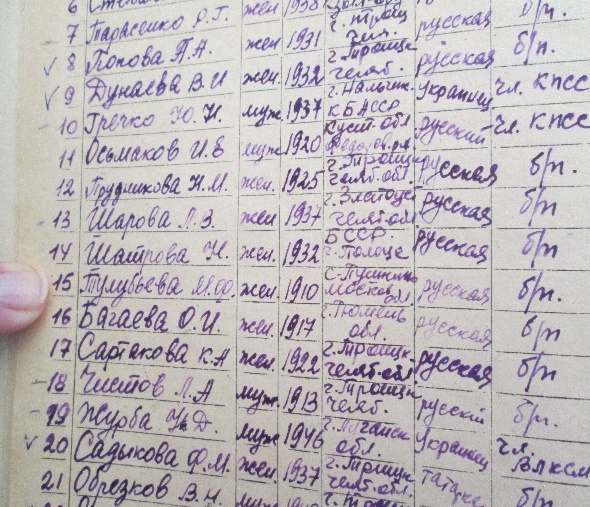 6
7 Тарасенко О.Г. жен 1938 г. Троиц русская б/п.
8 Попова П.А. жен 1931 г. Троицк челяб. русская б/п.
9 Дунаева В.И жен. 1932 г. Нальчик КБАССР Украинец чл. КПСС
10 Гречко Ю.И. муж. 1937 Куст. обл русский чл. КПСС
11 Осьмаков И.Е муж. 1920 г. Троицк челяб. обл. русская б/п.
12 Прудникова Н.М. жен 1925 г. Златоуст челяб. обл русская б/п
13 Шарова Л.В. жен 1937 русская б/п
14 Шатрова Н. жен 1932 БССР г. Полоцк русская б/п
15 Тулубьева М.Ф. жен. 1910 с. Пушкино Москов обл. русская б/п.
16 Багаева О.И. жен. 1917 г. Тюмень обл. русская б/п
17 Сартакова К.А жен 1922 г. Троицк. челяб. обл русская б/п
18 Чистов Л.А муж. 1913 г. Троицк челяб. русский б/п.
19 Журба Н.Д. муж 1946 г. Луганск обл. Украинец чл. ВЛКСМ
20 Садыкова Ф.М. жен 1937 г. Троицк челяб. обл. татарка б/п
21 Обрезков В.Н.